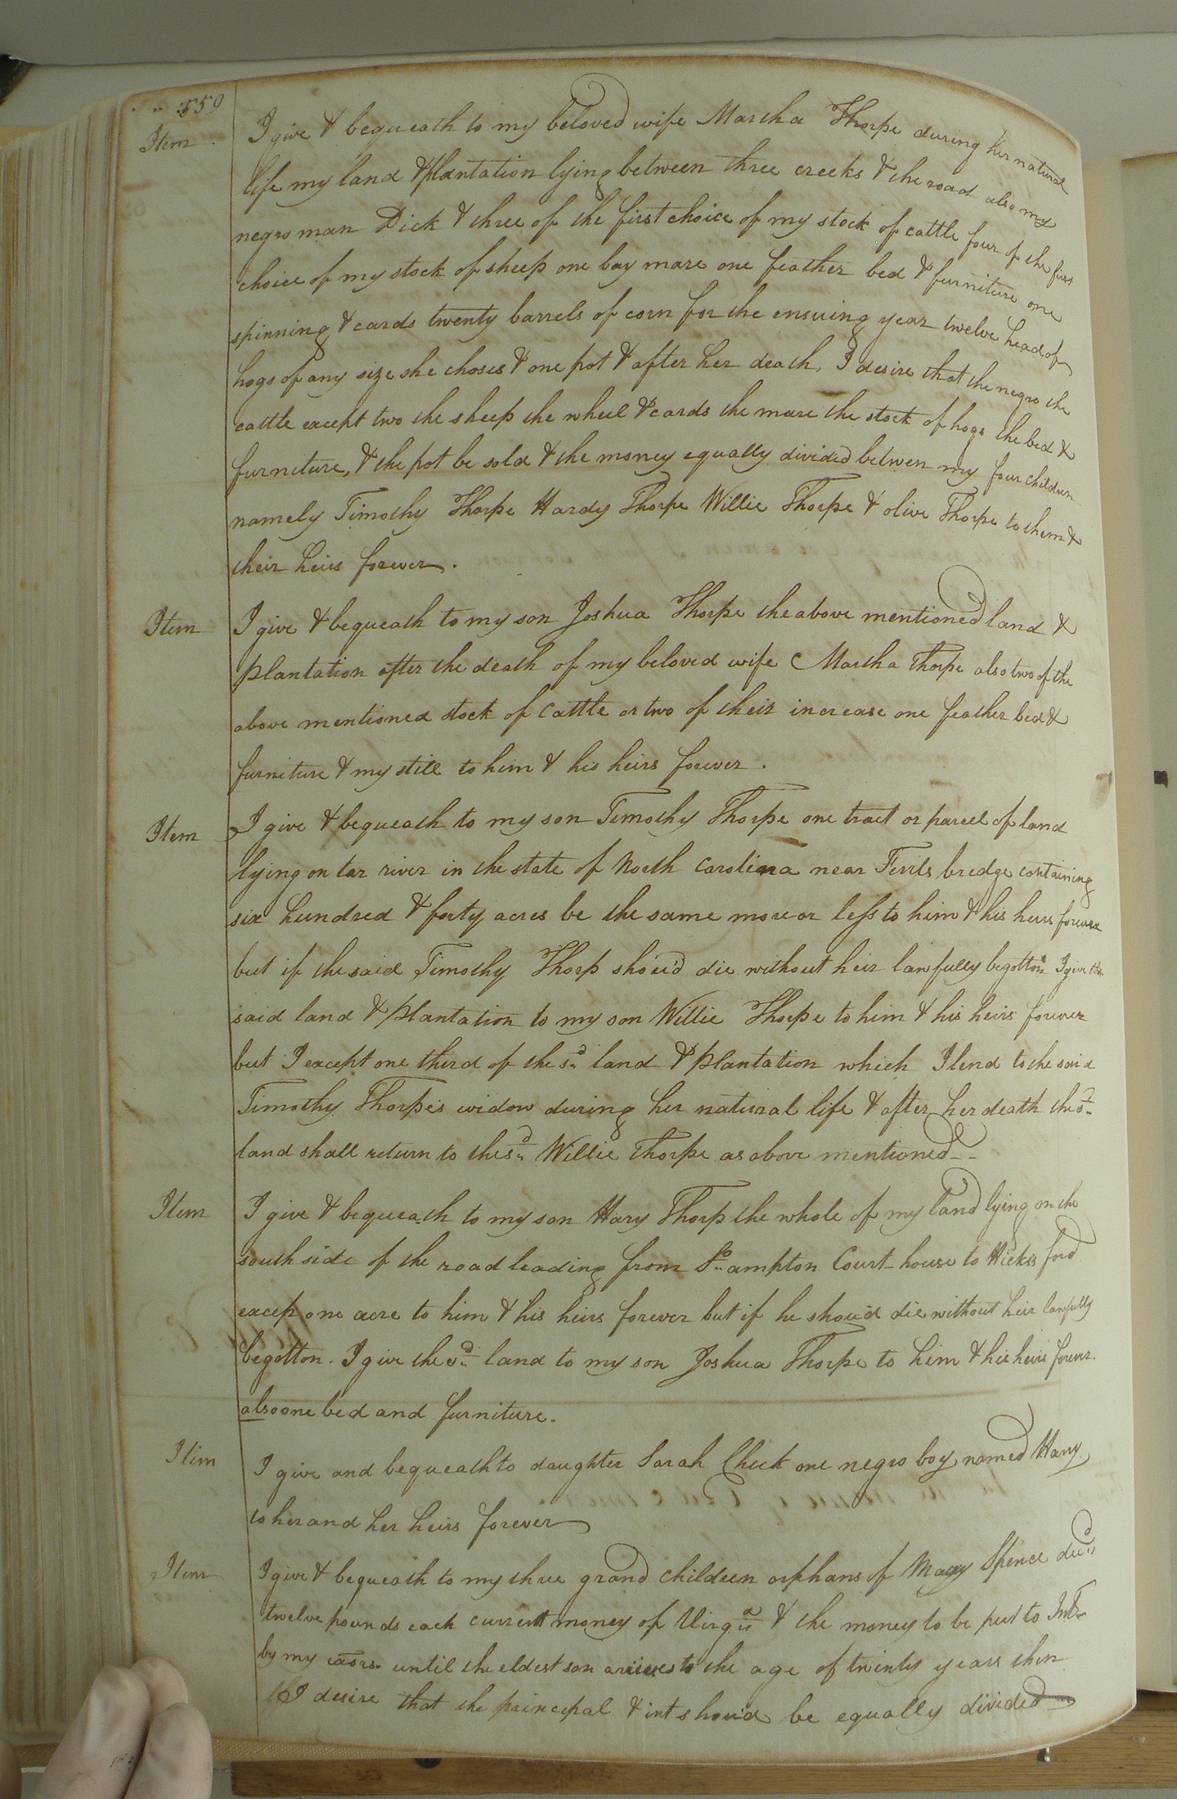 559
Item I give & bequeath to my beloved wife Martha Thorpe during her natural
life my land & plantation lying between three creeks & the road also my
negro man Dick & three of the first choice of my stock of cattle four of the first
choice of my stock of sheep one bay mare one feather bed & furniture one
spinning & cards twenty barrels of corn for the ensuing year twelve head of
hogs of any size she choses & one pot & after her death, I desire that the negro the
cattle except two the sheep the wheel & cards the mare the stock of hogs the bed &
furniture, & the pot be sold & the money equally divided betwen my four children
namely Timothy Thorpe Hardy Thorpe Willie Thorpe & olive Thorpe to them &
their heirs forever.
Item I give & bequeath to my son Joshua Thorpe the above mentioned land &
plantation after the death of my beloved wife Martha Thorpe also two of the
above mentioned stock of cattle or two of their increase one feather bed &
furniture & my still to him & his heirs forever.
Item I give & bequeath to my son Timothy Thorpe one tract or parcel of land
lying on tar river in the state of North Carolina near bredge containing
six hundred & forty acres be the same more or less to him & his heirs forever
but if the said Timothy Thorp shou'd die without heir lawfully begotton I give the
said land & plantation to my son Willie Thorpe to him & his heirs forever
but I except one third of the sd land & plantation which I lend to the said
Timothy Thorpes widow during her natural life & after her death the sd
land shall return to the sd Willie Thorpe as above mentioned
Item I give & bequeath to my son Hary Thorp the whole of my land lying on the
south side of the road leading from So ampton Court house to Hickes ford
excep one acre to him & his heirs forever but if he shou'd die without heir lawfully
begotton. I give the sd land to my son Joshua Thorpe to him & his heirs forever.
also one bed and furniture.
Item I give and bequeath to daughter Sarah Cheek one negro boy named Harry
to her and her heirs forever
Item I give & bequeath to my three grand children orphans of Mary Spence decd
twelve pounds each current money of Virga & the money to be put to Intr
by my exors. until the eldest son arives to the age of twenty years then
I desire that the principal & int shou'd be equally divided